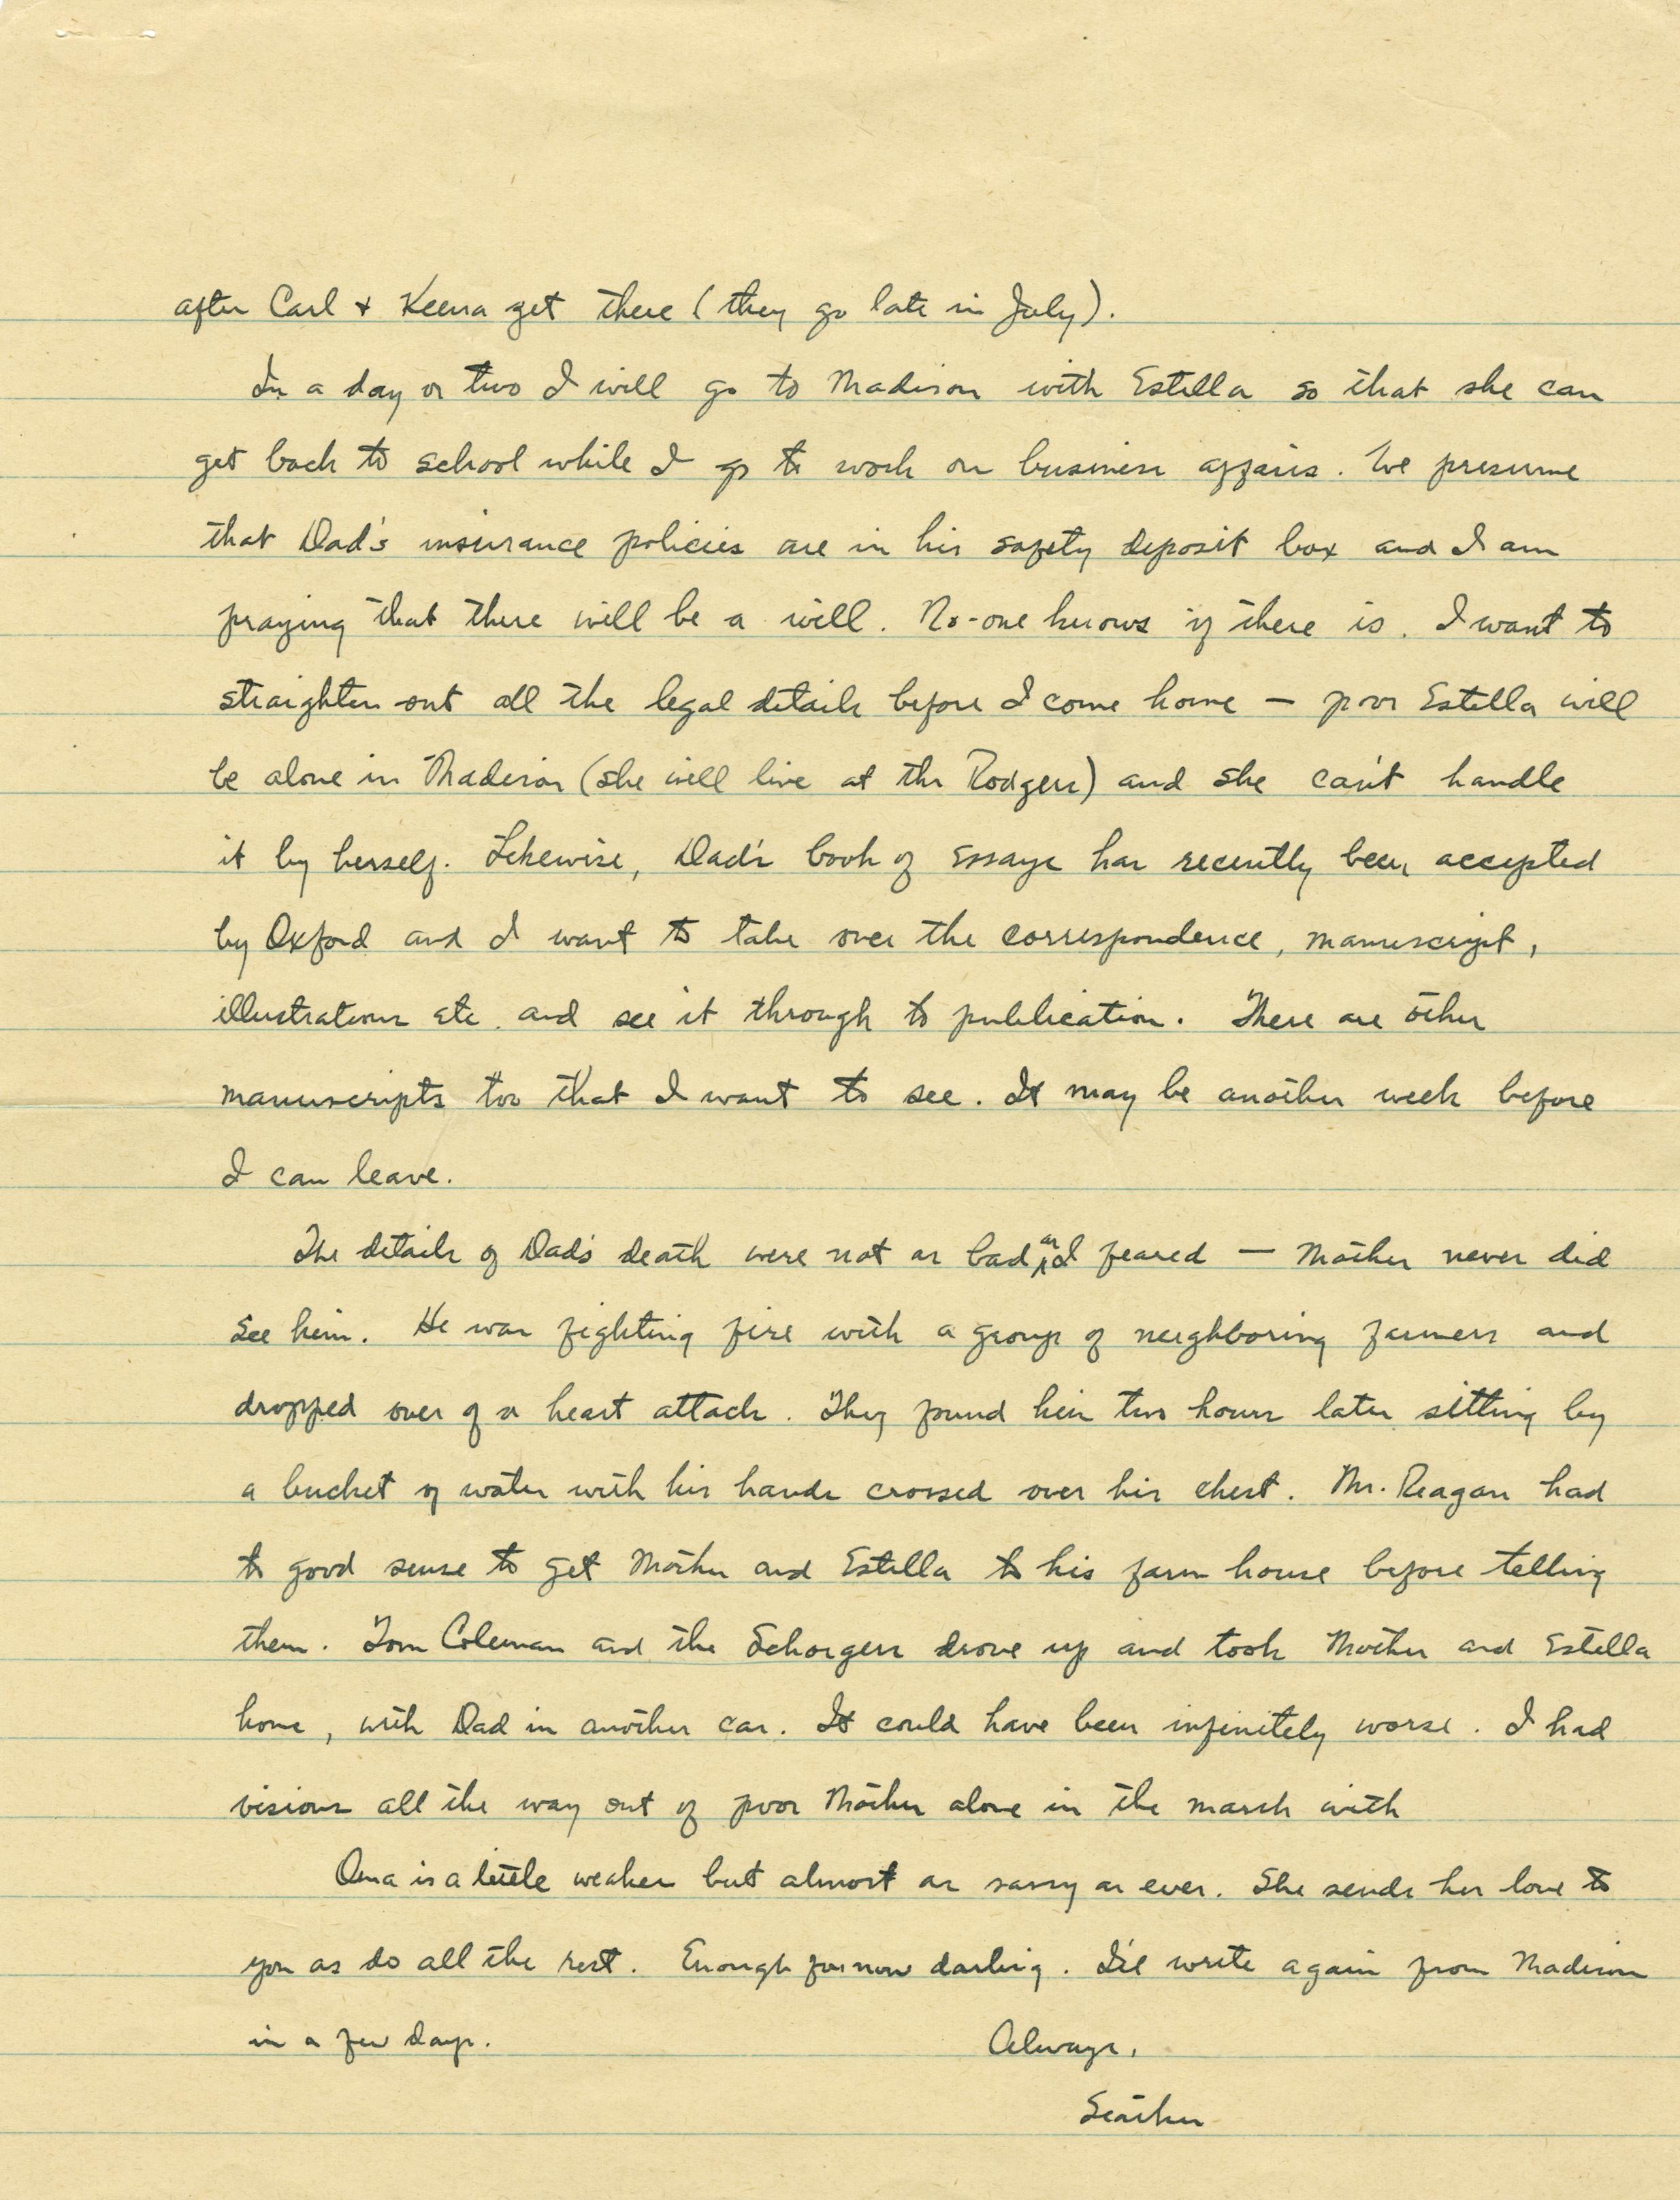 after Carl + Keena get there (they go late in July).
In a day or two I will go to Madison with Estella so that she can
get back to school while I go to work on business affairs. We presume
that Dad's insurance policies are in his safety deposit box and I am
praying that there will be a will. No-one knows if there is. I want to
straighten out all the legal details before I come home — poor Estella will
be alone in Madison (she will live at the Rodgers) and she can't handle
it by herself. Likewise, Dad's book of essays has recently been accepted
by Oxford and I want to take over the correspondence, manuscript,
illustrations etc. and see it through to publication. There are other
manuscripts too that I want to see. It may be another week before
I can leave.
The details of Dad's death were not as bad as I feared — Mother never did
see him. He was fighting fire with a group of neighboring farmers and
dropped over of a heart attack. They found him two hours later sitting by
a bucket of water with his hands crossed over his chest. Mr. Reagan had
to good sense to get Mother and Estella to his farm house before telling
them. Tom Coleman and the Schorgers drove up and took Mother and Estella
home, with Dad in another car. It could have been infinitely worse. I had
visions all the way out of poor Mother alone in the marsh with
Oma is a little weaker but almost as sassy as ever. She sends her love to
you as do all the rest. Enough for now darling. I'll write again from Madison
in a few days.
Always,
Starker